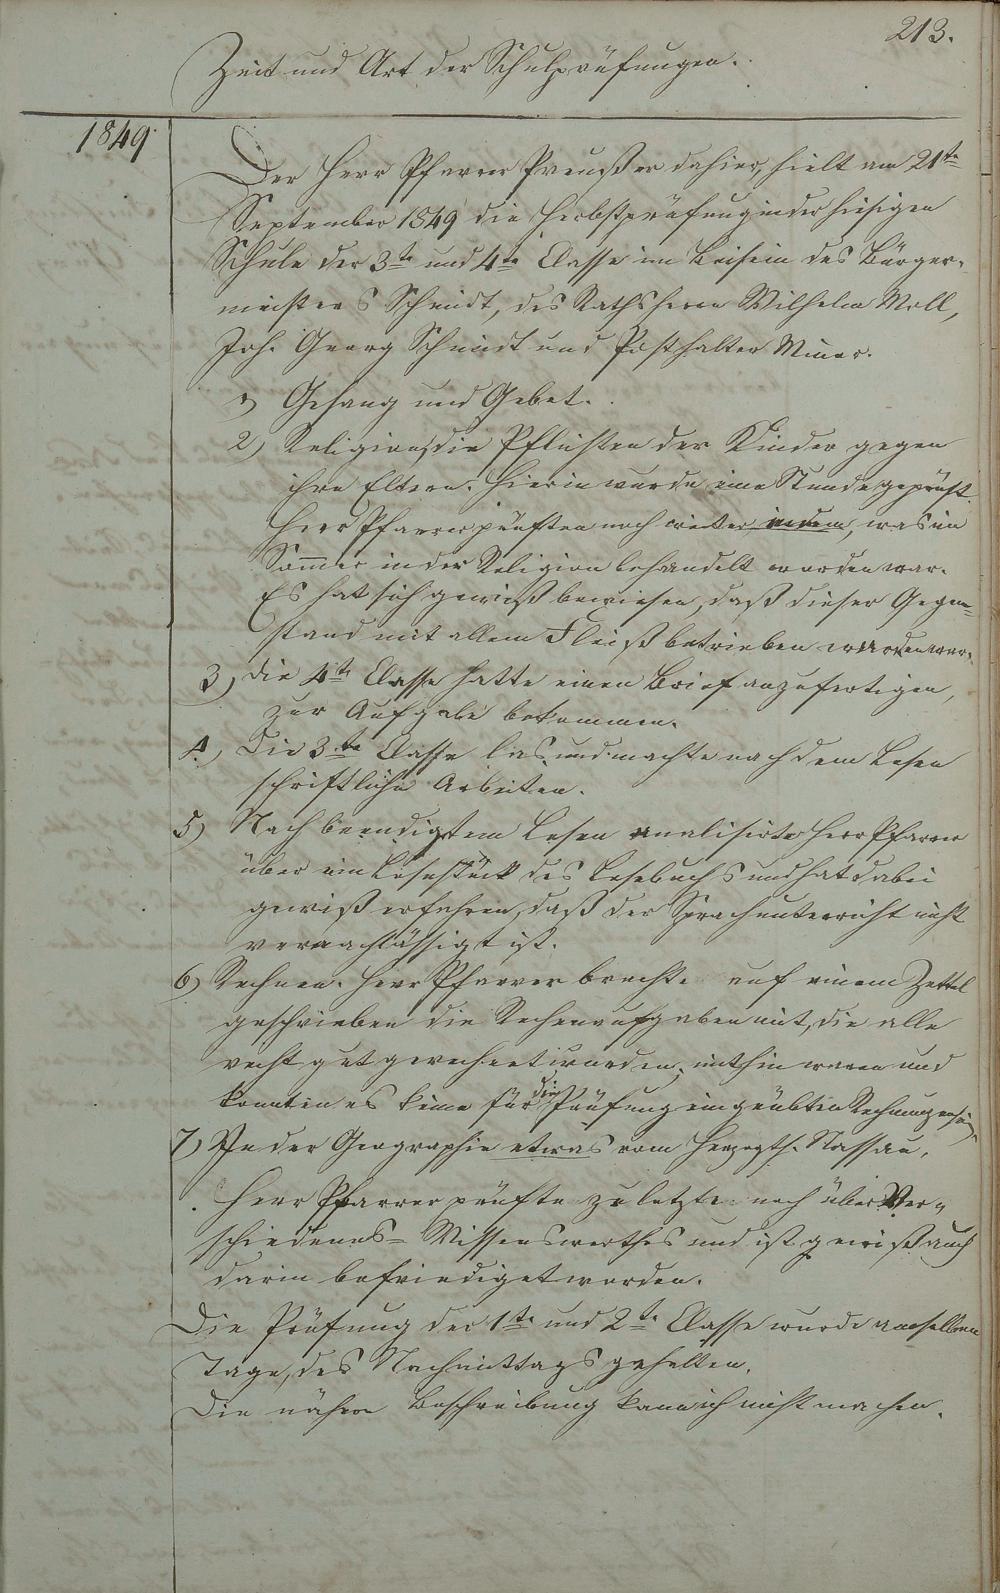 213.
Zeit und Art der Schulprüfungen.
1849
Der Herr Pfarrer Preußer dahier, hielt am 21te
September 1849 die Herbstprüfung in der hiesigen
Schule der 3te und 4te Classe im Beisein des Bürger-
meisters Schmidt, des Rathsherrn Wilhelm Moll,
Joh. Georg Schmidt und Posthalter
1) Gesang und Gebet.
2) Religion, die Pflichten der Kinder gegen
ihre Eltern. Hierin wurde eine Stunde geprüft.
Herr Pfarrer prüften noch weiter in dem, was im
Som̄er in der Religion behandelt worden war.
Es hat sich gewiß bewiesen, daß dieser Gegen-
stand mit allem Fleiß betrieben worden war.
3) die 4te Classe hatte einen Brief anzufertigen,
zur Aufgabe bekommen.
4.) Die 3.te Classe las und machte nach dem Lesen
schriftliche Arbeiten.
5) Nach beendigtem Lesen analisirte Herr Pfarrer
über ein Lesestück des Lesebuchs und hat dabei
gewiß erfahren, daß der Sprachunterricht nicht
vernachlässigt ist.
6) Rechnen. Herr Pfarrer brachte auf einem Zettel
geschrieben die Rechenaufgaben mit, die alle
recht gut gerechnet wurden, mithin waren und
konnten es keine für die Prüfung eingeübten Rechnungen sein.
7) In der Geographie etwas vom Herzogth. Nassau.
Herr Pfarrer prüfte zuletzt noch über Ver-
schiedenes - Wissenswerthes und ist gewiß auch
darin befriediget worden.
Die Prüfung der 1te und 2te Classe wurde am selben
Tage, des Nachmittags gehalten.
Die nähere Beschreibung kann ich nicht machen.